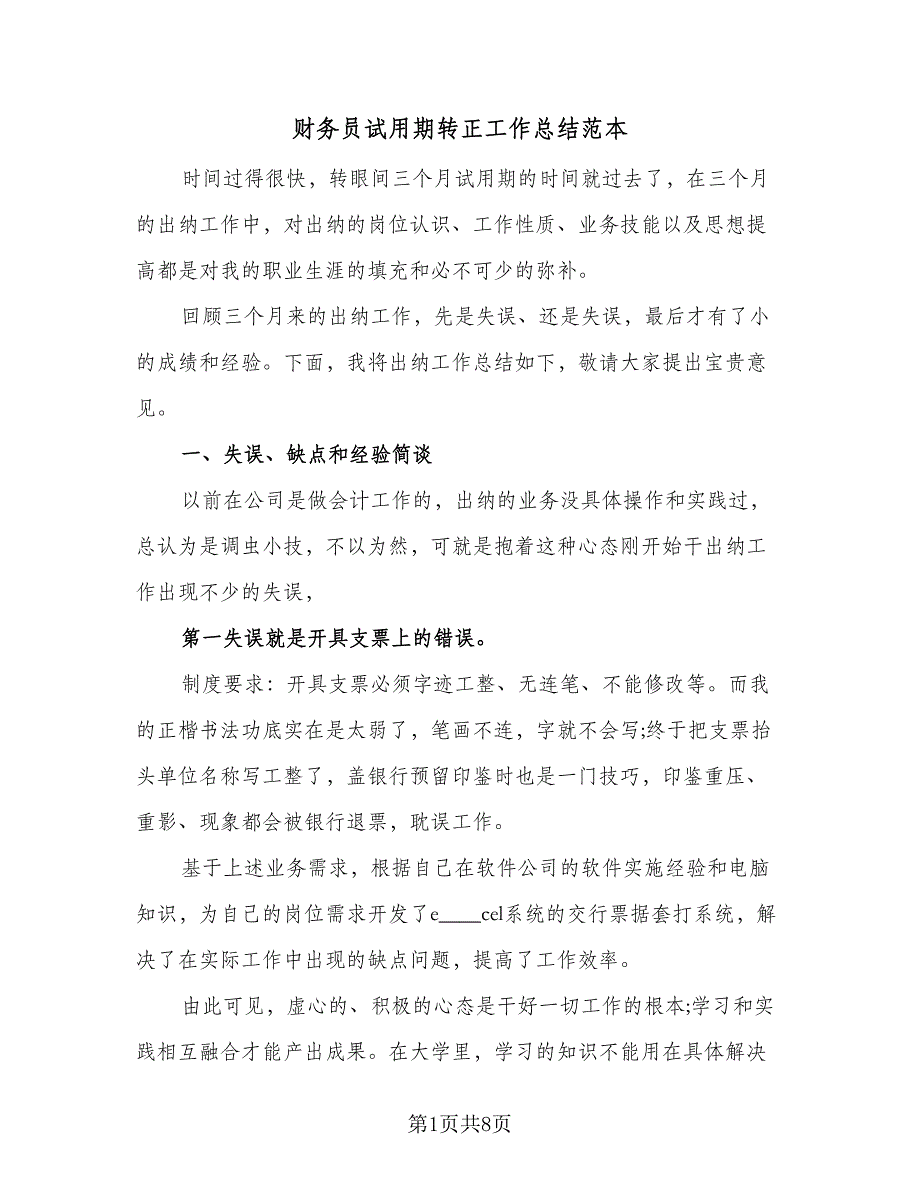 财务员试用期转正工作总结范本
时间过得很快，转眼间三个月试用期的时间就过去了，在三个月
的出纳工作中，对出纳的岗位认识、工作性质、业务技能以及思想提
高都是对我的职业生涯的填充和必不可少的弥补。
回顾三个月来的出纳工作，先是失误、还是失误，最后才有了小
的成绩和经验。下面，我将出纳工作总结如下，敬请大家提出宝贵意
见。
一、失误、缺点和经验简谈
以前在公司是做会计工作的，出纳的业务没具体操作和实践过，
总认为是调虫小技，不以为然，可就是抱着这种心态刚开始干出纳工
作出现不少的失误，
第一失误就是开具支票上的错误。
制度要求：开具支票必须字迹工整、无连笔、不能修改等。而我
的正楷书法功底实在是太弱了，笔画不连，字就不会写;终于把支票抬
头单位名称写工整了，盖银行预留印鉴时也是一门技巧，印鉴重压、
重影、现象都会被银行退票，耽误工作。
基于上述业务需求，根据自己在软件公司的软件实施经验和电脑
知识，为自己的岗位需求开发了e____cel系统的交行票据套打系统，解
决了在实际工作中出现的缺点问题，提高了工作效率。
由此可见，虚心的、积极的心态是干好一切工作的根本;学习和实
践相互融合才能产出成果。在大学里，学习的知识不能用在具体解决
第1页共8页